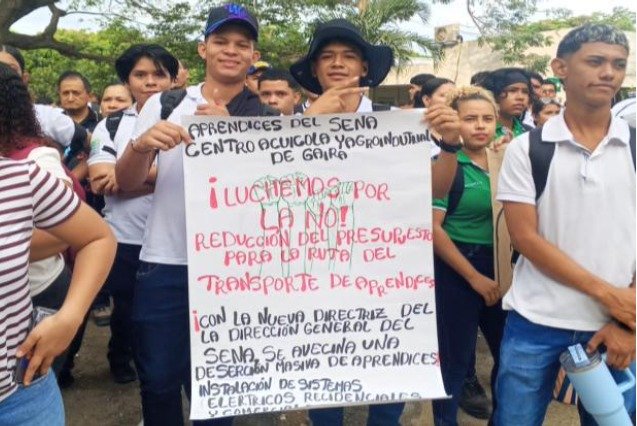 APRENDICES DEL SENA
CENTRO ACUICOLA Y AGROINDUTRIAL
DE GAIRA
¡LUCHEMOS POR
LA NO!
REDUCCIÓN DEL PRESUPUESTO
PARA LA RUTA DEL
TRANSPORTE DE APRENDICES
¡CON LA NUEVA DIRECTRIZ DEL
LA DIRECCIÓN GENERAL DEL
SENA, SE AVECINA UNA
DESERCIÓN MASIVA DE APRENDICES!
INSTALACIÓN DE SISTEMAS
ELECTRICOS RESIDENCIALES
Y COMERCIAL